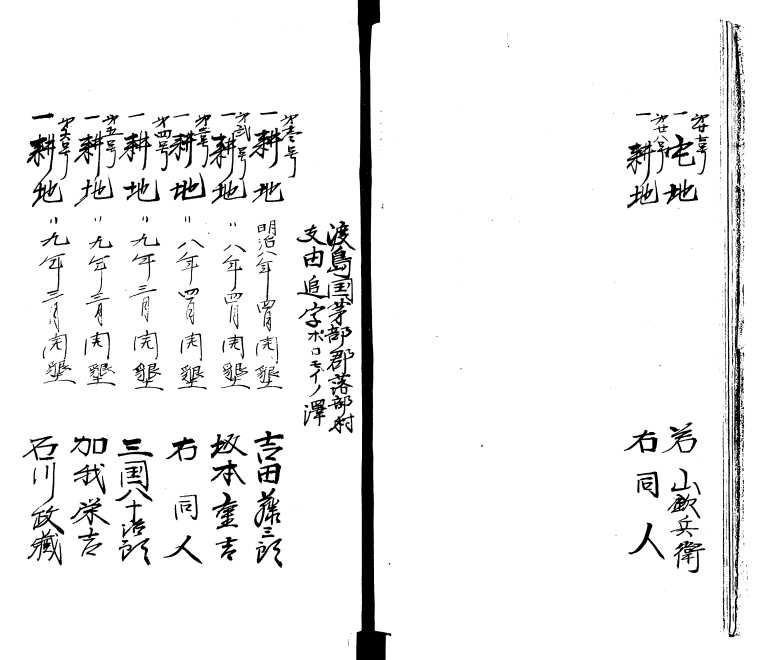 一宅地 若山欽兵衛
第廿八号
一耕地 右同人
渡島国茅部郡落部村
支由追字ポロモイノ澤
第壱号
一耕地 明治八年四月開墾 吉田藤三郎
第弐号
一耕地 〃八年四月開墾 坂本重吉
第三号
一耕地 〃八年四月開墾 右同人
第四号
一耕地 〃九年三月開墾 三国八十治郎
第五号
一耕地 〃九年三月開墾 加我栄吉
第六号
一耕地 〃九年三月開墾 石川政蔵